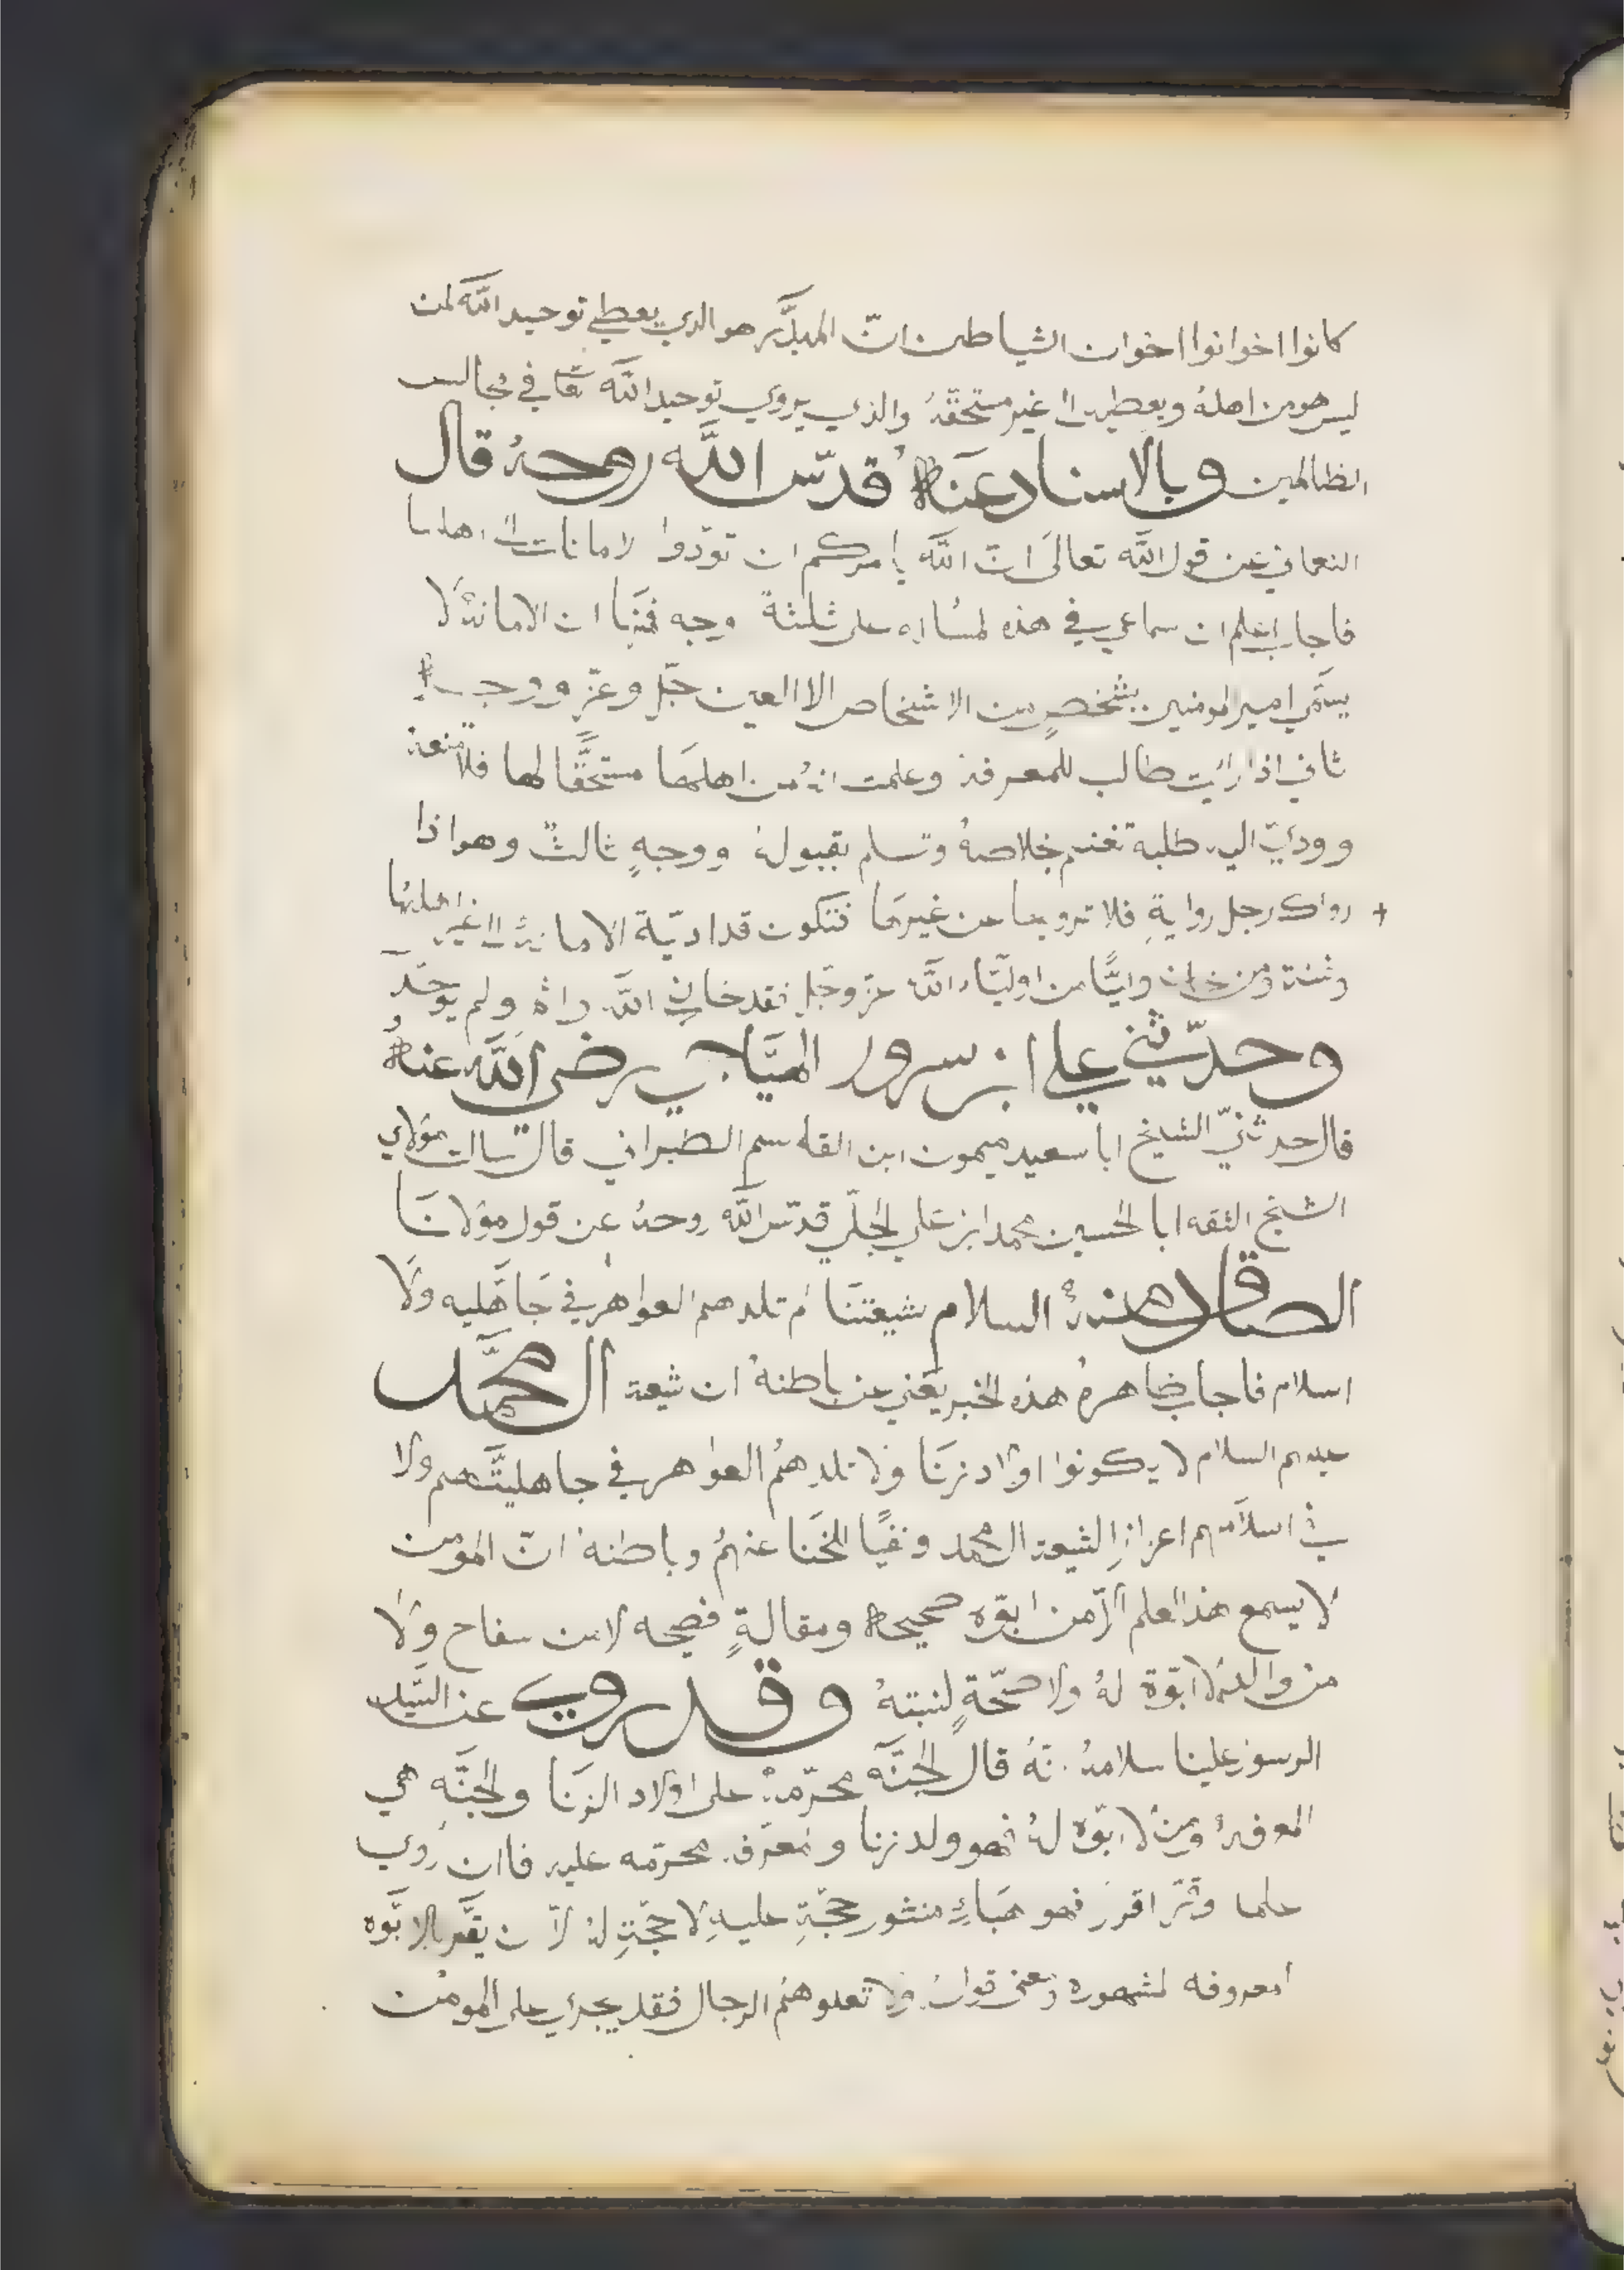 كانوا اخوانوا اخوان الشياطين انّ المبذّر هو الذي يعطي توحيد اللّه لمن
ليس هو من اهلهُ ويعطيه الا غير مستحقّهُ والذي يروي توحيد اللّه في مجالس
الظالمين وبالاسناد عنه قدّس اللّه روحهُ قال
النعماني عن قول اللّه تعالى انّ اللّه يامركم ان تودّوا الامانات الى اهلها
فاجاب اعلم ان سماعي في هذه على ثلثة وجه فمنها ان الامانة لا
يسمّي امير المومنين بشخصٍ من الاشخاص الا العين جلّ وعزّ ووجه
ثاني اذا رايت طالب للمعرفة وعلمت انهُ من اهلها مستحقًّا لها فلا تمنعه
ووديّ اليه طلبة تغنم خلاصهُ وتسلم بقبوله ووجهٍ ثالث وهو اذا
رواك رجل روايةٍ فلا ترويها عن غيرها فتكون قد ادّيّة الامانة الى غير اهلها
ومن خان وليًّا من اولياء اللّه عزّ وجل فقد خان اللّه ولم يوحّد
وحدّثني علي ابن سرور رضي اللّه عنه
قال حدثنيّ الشيخ ابا سعيد ميمون ابن القاسم الطبراني قال سالت مولاي
الشيخ الثقه ابا الحسين محمد ابن علي الجلّي قدّس اللّه روحهُ عن قول مولانا
الصادق منهُ السلام شيعتنا لم تلدهم العواهر في جاهليه ولا
اسلام فاجاب ضاهرهُ هذه الخبر يغني عن باطنهُ ان شيعة ال محمّد
عليهم السلام لا يكونوا اولاد زنا ولا تلدهمُ العواهر في جاهليّتهم ولا
في اسلامهم اعزازًا لشيعة ال محمد ونفيًا للخنا عنهمُ وباطنهُ انّ المومن
لا يسمع هذا العلم الّا من ابوّه صحيحه ومقالةٍ فصيحه لا من سفاح ولا
من والد لا ابوّة لهُ ولا صحّةٍ لنسبتهُ وقد روي عن السّيد
الرسول علينا سلامهُ انّهُ قال الجنّه محرّمهُ على اولاد الزنا والجنّه هي
المعرفه ومن لا ابوّه لهُ فهو ولد زنا والمعرفه محرّمه عليه فاان روي
علما فهو هباءٍ منثور حجّةٍ عليهِ لا حجّةٍ لهُ لان يقر بالابوّه
المعروفه المشهوره ومعنى قولهُ ولا تعلوهمُ الرجال فقد يجري على المومن